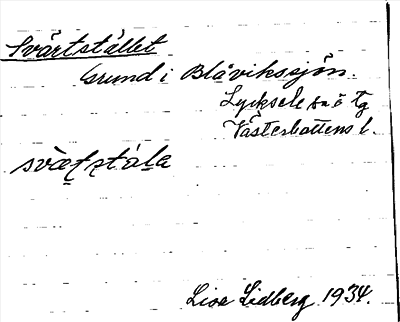 Svärtstället
Grund i Blåvikssjön.
Lycksele sn o tg
Västerbottens l.
svæt̬s̬tála
Lisa Lidberg 1934.